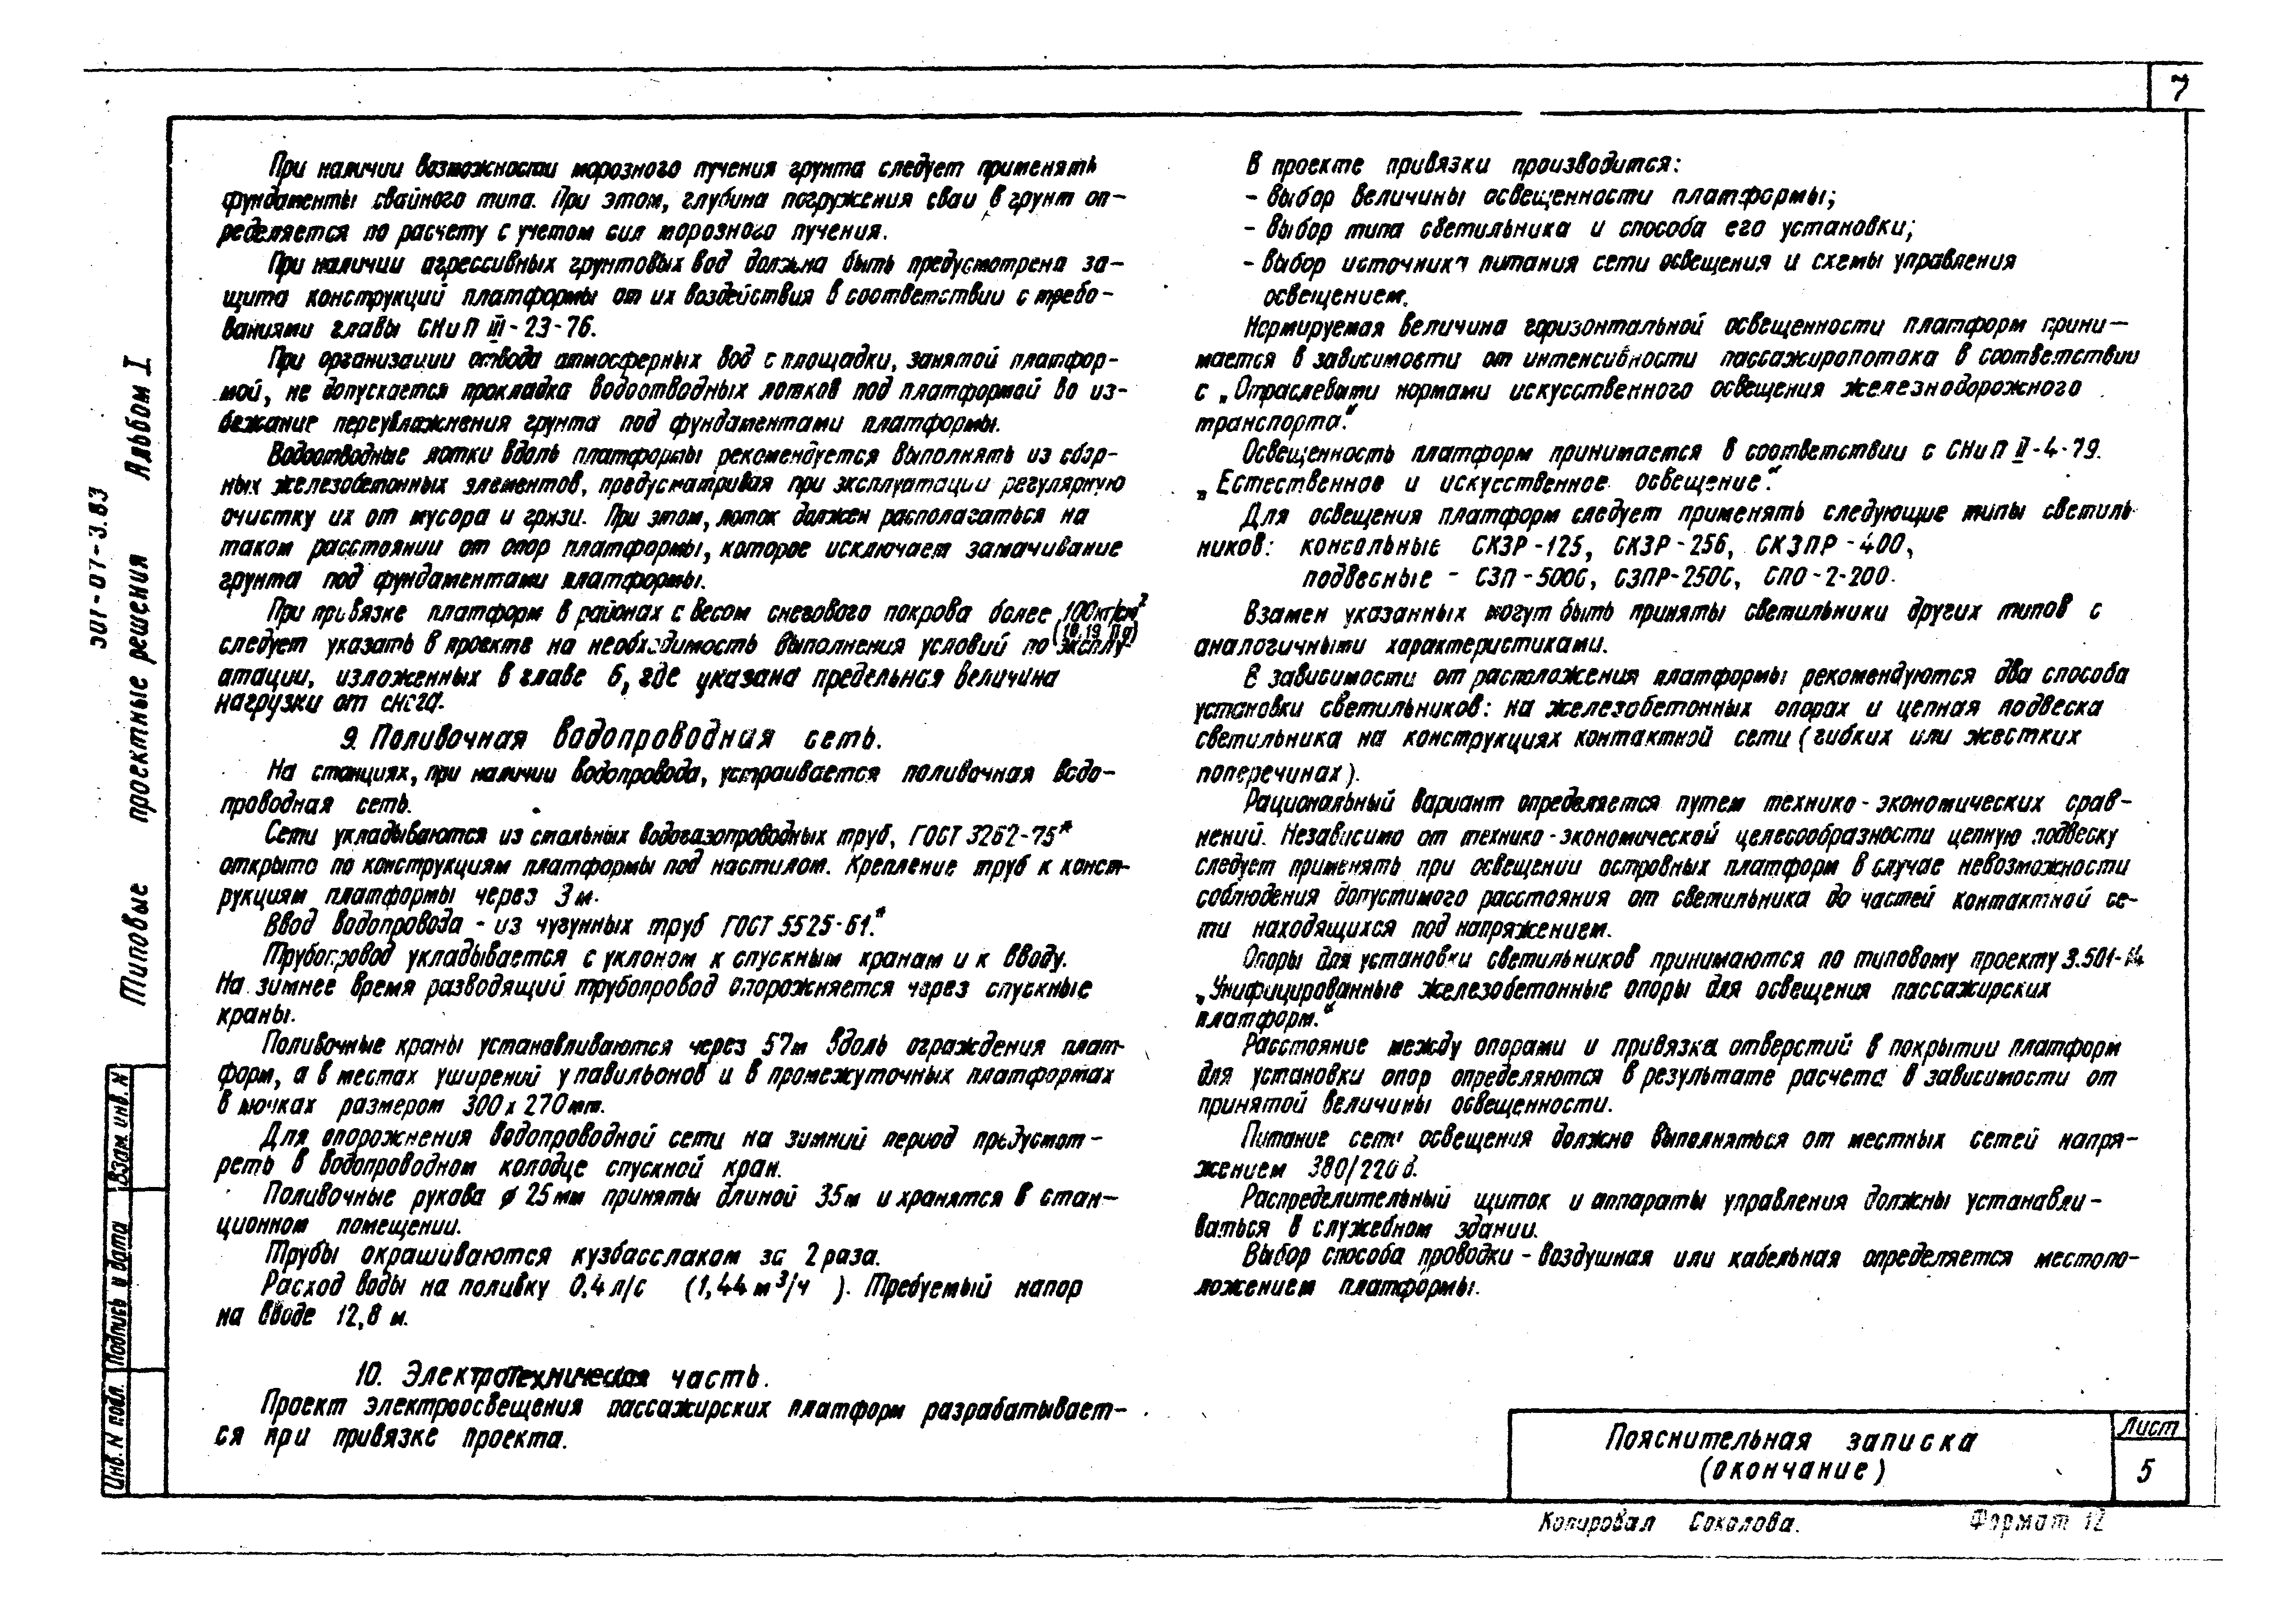 7
При наличии возможности морозного пучения грунта следует применять
фундаменты свайного типа. При этом, глубина погружения сваи в грунт оп-
ределяется по расчету с учетом сил морозного пучения.
При наличии агрессивных грунтовых вод должна быть предусмотрена за-
щита конструкций платформы от их воздействия в соответствии с требо-
ваниями главы СНиП III-23-76.
При организации отвода атмосферных вод с площадки, занятой платфор-
мой, не допускается прокладка водоотводных лотков под платформой во из-
бежание переувлажнения грунта под фундаментами платформы.
Водоотводные лотки вдоль платформы рекомендуется выполнять из сбор-
ных железобетонных элементов, предусматривая при эксплуатации регулярную
очистку их от мусора и грязи. При этом, лоток должен располагаться на
таком расстоянии от опор платформы, которое исключает замачивание
грунта под фундаментами платформы.
При привязке платформ в районах с весом снегового покрова более 100кг/см²
(10,19 Па)
следует указать в проекте на необходимость выполнения условий по эксплу-
атации, изложенных в главе 6, где указана предельная величина
нагрузки от снега.
9. Поливочная водопроводная сеть.
На станциях, при наличии водопровода, устраивается поливочная водо-
проводная сеть.
Сети укладываются из стальных водогазопроводных труб, ГОСТ 3262-75*
открыто по конструкциям платформы под настилом. Крепление труб к конст-
рукциям платформы через 3м.
Ввод водопровода - из чугунных труб ГОСТ 5525-61*.
Трубопровод укладывается с уклоном к спускным кранам и к вводу.
На зимнее время разводящий трубопровод опорожняется через спускные
краны.
Поливочные краны устанавливаются через 57м вдоль ограждения плат-
форм, а в местах уширений у павильонов и в промежуточных платформах
в лючках размером 300 х 270мм.
Для опорожнения водопроводной сети на зимний период предусмот-
реть в водопроводном колодце спускной кран.
Поливочные рукава ø 25мм приняты длиной 35м и хранятся в стан-
ционном помещении.
Трубы окрашиваются кузбасслаком за 2 раза.
Расход воды на поливку 0,4 л/с (1,44 м³/ч ). Требуемый напор
на вводе 12,8 м.
10. Электротехническая часть.
Проект электроосвещения пассажирских платформ разрабатывает-
ся при привязке проекта.
В проекте привязки производится:
- выбор величины освещенности платформы;
- выбор типа светильника и способа его установки;
- выбор источника питания сети освещения и схемы управления
освещением.
Нормируемая величина горизонтальной освещенности платформ прини-
мается в зависимости от интенсивности пассажиропотока в соответствии
с „Отраслевыми нормами искусственного освещения железнодорожного
транспорта“.
Освещенность платформ принимается в соответствии с СНиП II-4-79.
„Естественное и искусственное освещение“.
Для освещения платформ следует применять следующие типы светиль-
ников: консольные СКЗР-125, СКЗР-256, СКЗПР-400,
подвесные - СЗП-500С, СЗПР-250С, СПО-2-200.
Взамен указанных могут быть приняты светильники других типов с
аналогичными характеристиками.
В зависимости от расположения платформы рекомендуются два способа
установки светильников: на железобетонных опорах и цепная подвеска
светильника на конструкциях контактной сети (гибких или жестких
поперечинах).
Рациональный вариант определяется путем технико-экономических срав-
нений. Независимо от технико-экономической целесообразности цепную подвеску
следует применять при освещении островных платформ в случае невозможности
соблюдения допустимого расстояния от светильника до частей контактной се-
ти находящихся под напряжением.
Опоры для установки светильников принимаются по типовому проекту 3.501-
„Унифицированные железобетонные опоры для освещения пассажирских
платформ.“
Расстояние между опорами и привязка отверстий в покрытии платформ
для установки опор определяются в результате расчета в зависимости от
принятой величины освещенности.
Питание сети освещения должно выполняться от местных сетей напря-
жением 380/220 в.
Распределительный щиток и аппараты управления должны устанавли-
ваться в служебном здании.
Выбор способа проводки - воздушная или кабельная определяется местопо-
ложением платформы.
Пояснительная записка
(окончание)
Лист
5
Копировал Соколова.
Формат 12
501-07-3.83
Типовые проектные решения Альбом I
Взам. инв. N
Подпись и дата
Инв. N подл.